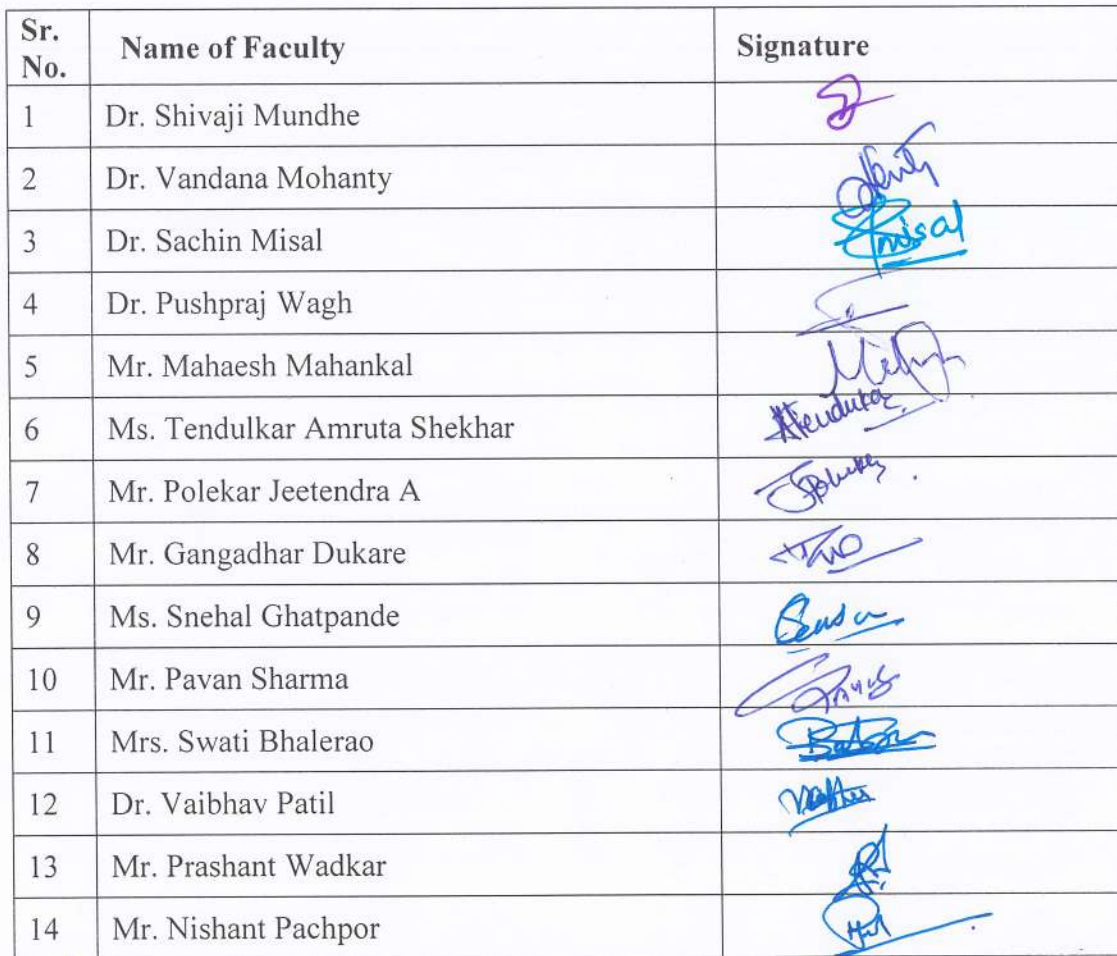 Sr. No. Name of Faculty Signature
1 Dr. Shivaji Mundhe
2 Dr. Vandana Mohanty
3 Dr. Sachin Misal misal
4 Dr. Pushpraj Wagh
5 Mr. Mahaesh Mahankal
6 Ms. Tendulkar Amruta Shekhar
7 Mr. Polekar Jeetendra A
8 Mr. Gangadhar Dukare
9 Ms. Snehal Ghatpande
10 Mr. Pavan Sharma
11 Mrs. Swati Bhalerao
12 Dr. Vaibhav Patil
13 Mr. Prashant Wadkar
14 Mr. Nishant Pachpor